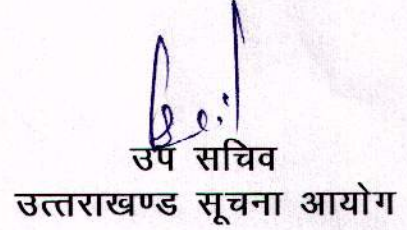 उप सचिव
उत्तराखण्ड सूचना आयोग